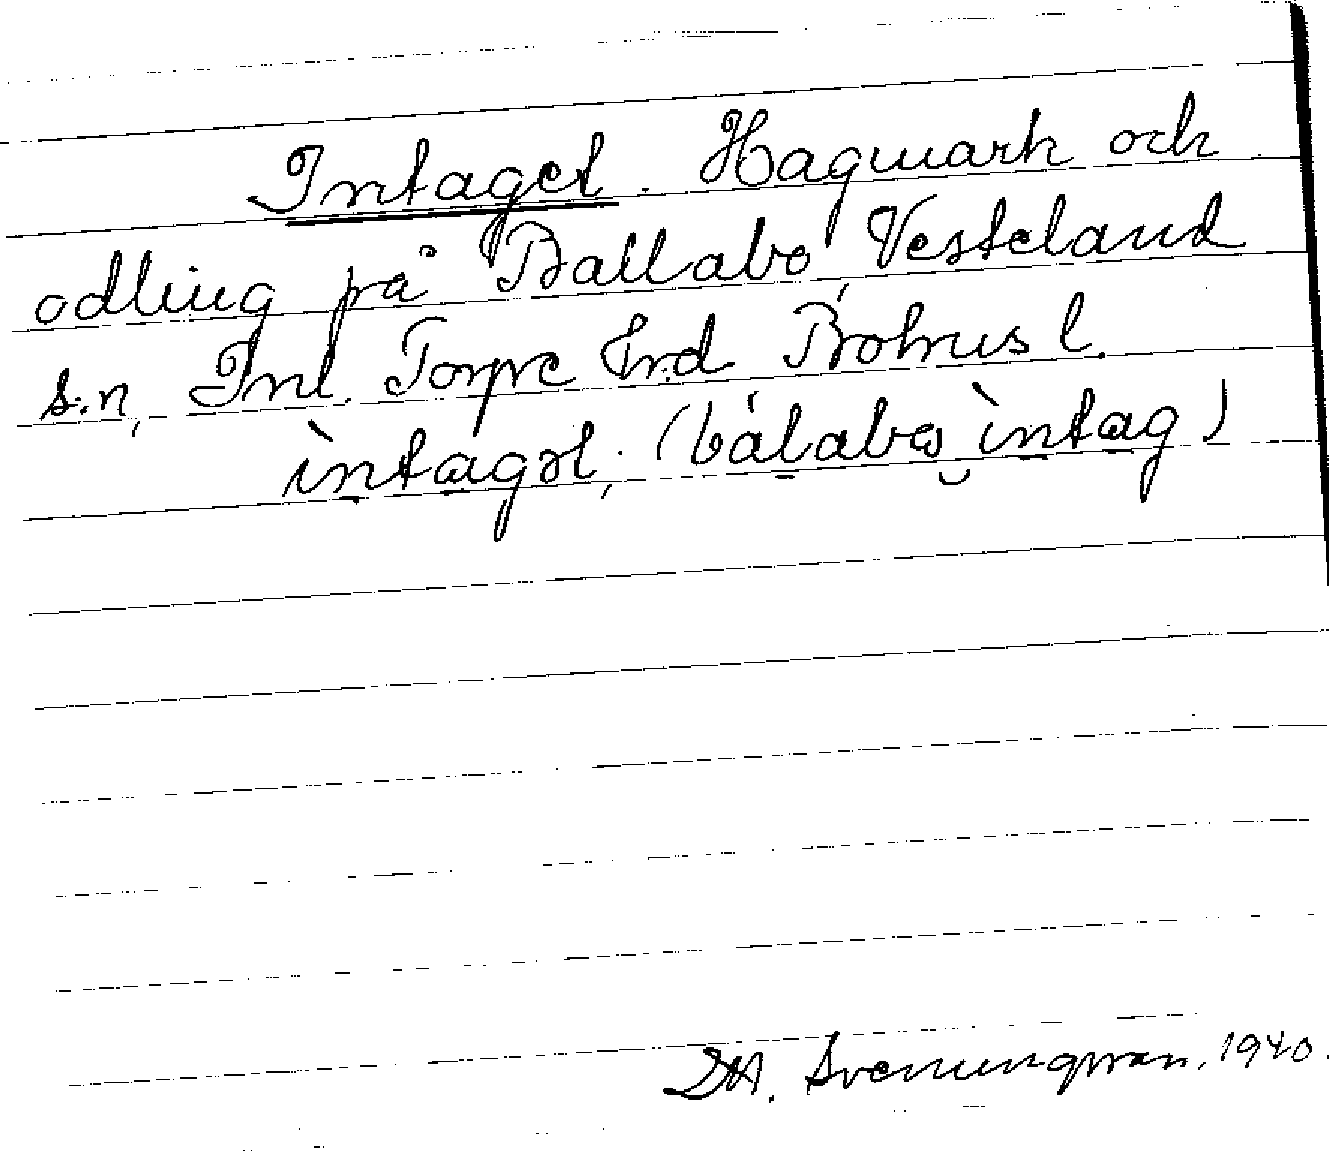 Intaget. Hagmark och
odling på Ballabo, Vesteland
s:n, Inl. Torpe Hrd Bohus l.
ìntagət, (bálabɷs ìntag)
M. Svenungsson, 1940.